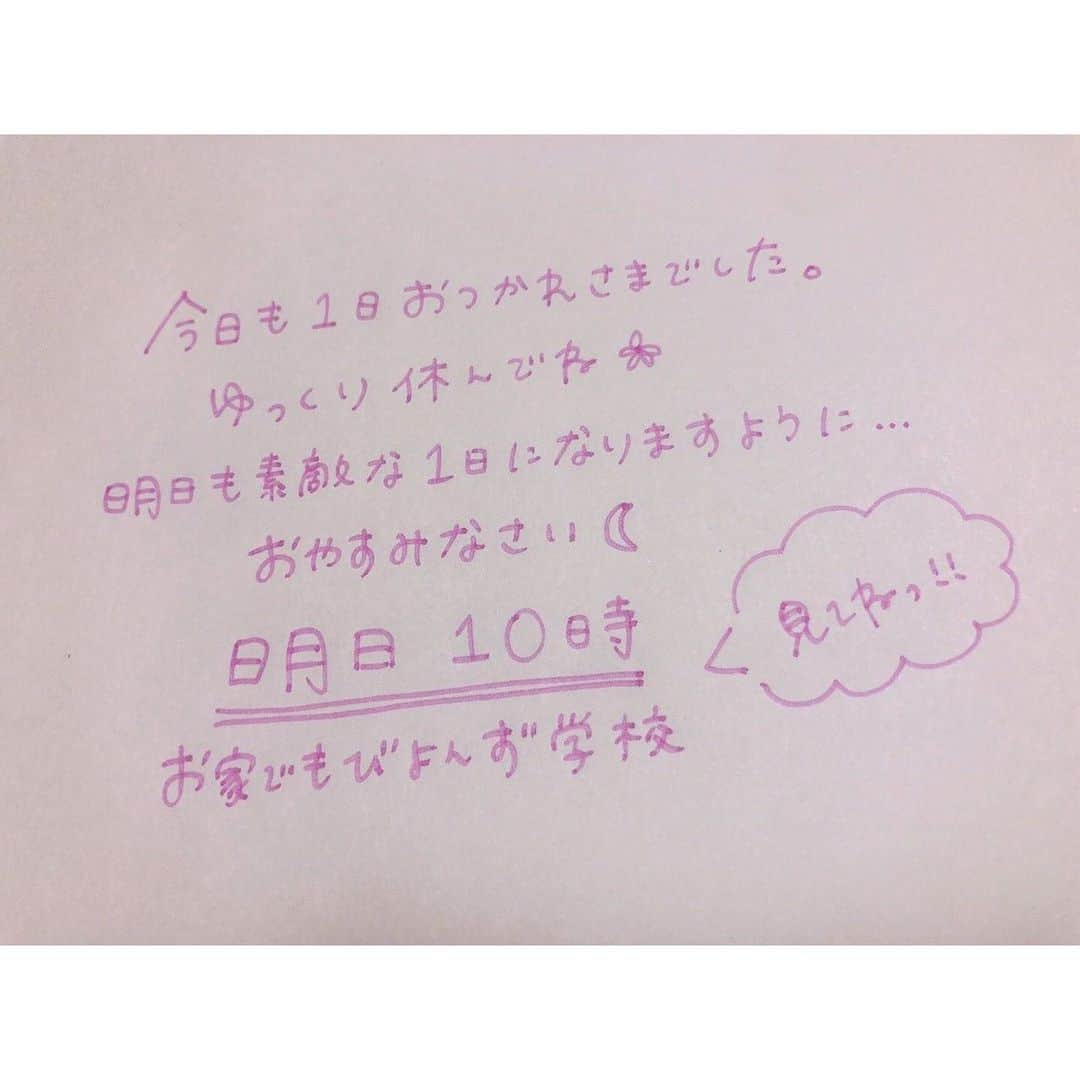 今日も1日おつかれさまでした。
ゆっくり休んでね
明日も素敵な1日になりますように...
おやすみなさい
明日 10時
お家でもびよんず学校
見てねっ!!